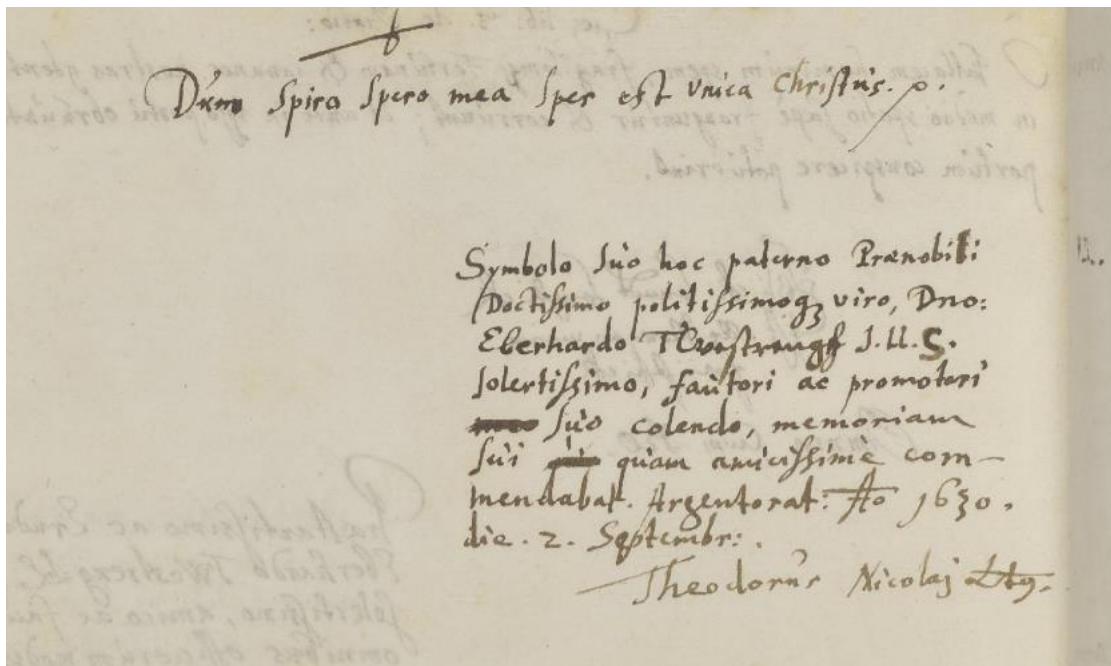 Dum Spiro Spero mea Spes est Unica Christus. p.
Symbolo suo hoc paterno Prænobili
Doctissimo politissimoq; viro, Dno:
Eberhardo Twestrengk J.U.S.
solertissimo, fautori ac promotori
suo colendo, memoriam
sui quam amicissimè com-
mendabat. Argentorat: Ao 1630.
die. 2. Septembr:.
Theodorus Nicolaj